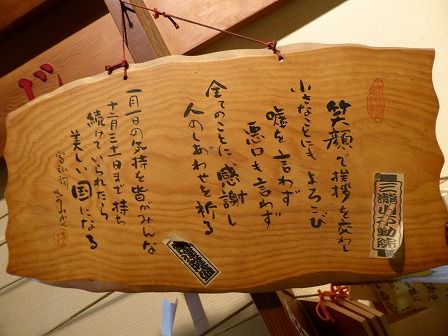 笑顔で挨拶を交わし
小さなことにも よろこび
嘘を言わず
悪口も言わず
全てのことに 感謝し
人のしあわせを祈る
一月一日の気持を皆がみんな
十二月三十一日まで持ち
続けていられたら
美しい国になる
三瀧川不動院